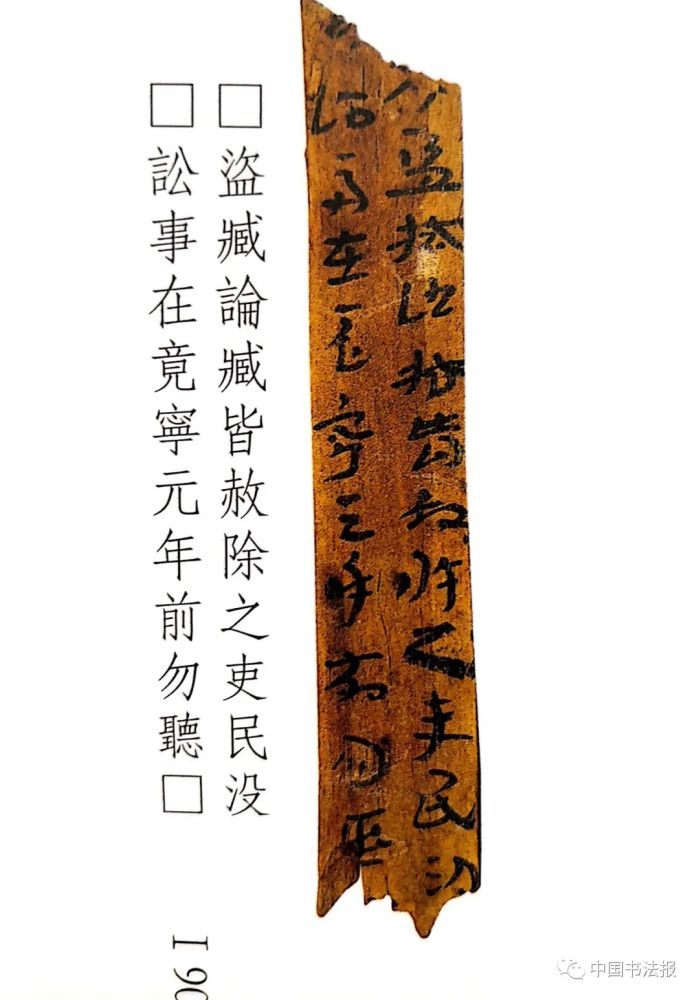 □盜臧論臧皆赦除之吏民没
□訟事在竟寧元年前勿聽□
I 90
中国书法报